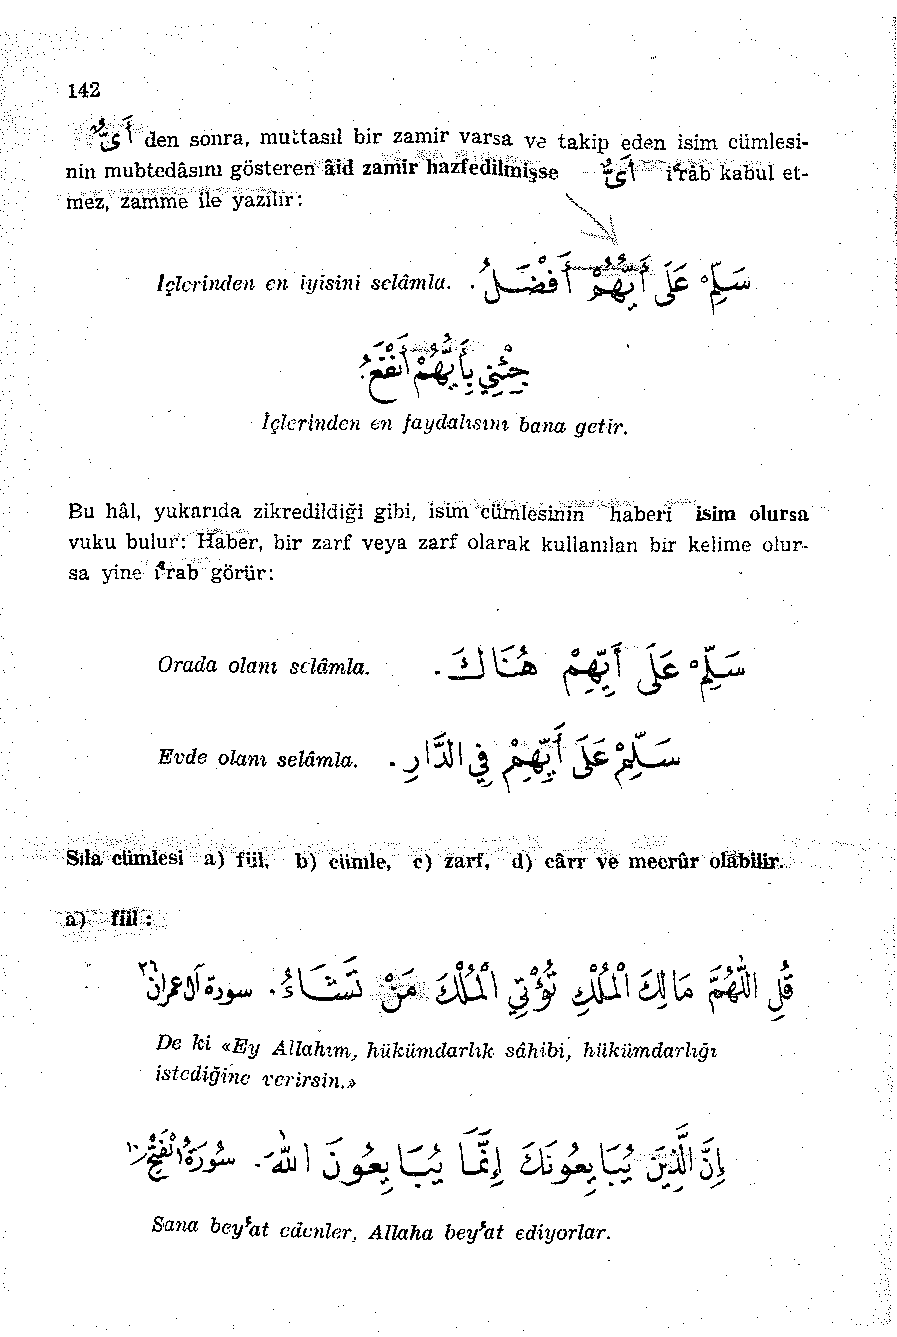 142
أَيُّ den sonra, muttasıl bir zamir varsa ve takip eden isim cümlesi-
nin mubtedâsını gösteren âid zamir hazfedilmişse أَيُّ iʿrâb kabul et-
mez, zamme ile yazılır:
İçlerinden en iyisini selâmla. سَلِّمْ عَلَى أَيُّهُمْ أَفْضَلُ .
جِئْنِي بِأَيُّهُمْ أَنْفَعُ.
İçlerinden en faydalısını bana getir.
Bu hâl, yukarıda zikredildiği gibi, isim cümlesinin haberi isim olursa
vuku bulur: Haber, bir zarf veya zarf olarak kullanılan bir kelime olur-
sa yine iʿrab görür:
Orada olanı selâmla. سَلِّمْ عَلَى أَيِّهِمْ هُنَالِكَ .
Evde olanı selâmla. سَلِّمْ عَلَى أَيِّهِمْ فِي الدَّارِ .
Sıla cümlesi a) fiil, b) cümle, c) zarf, d) cârr ve mecrûr olabilir.
a) fiil :
قُلِ اللَّهُمَّ مَالِكَ الْمُلْكِ تُؤْتِي الْمُلْكَ مَنْ تَشَاءُ. سورة آل عمران ٢٦
De ki «Ey Allahım, hükümdarlık sâhibi, hükümdarlığı
istediğine verirsin.»
إِنَّ الَّذِينَ يُبَايِعُونَكَ إِنَّمَا يُبَايِعُونَ اللهَ. سُورَةُ الْفَتْحِ ١٠
Sana beyʿat edenler, Allaha beyʿat ediyorlar.